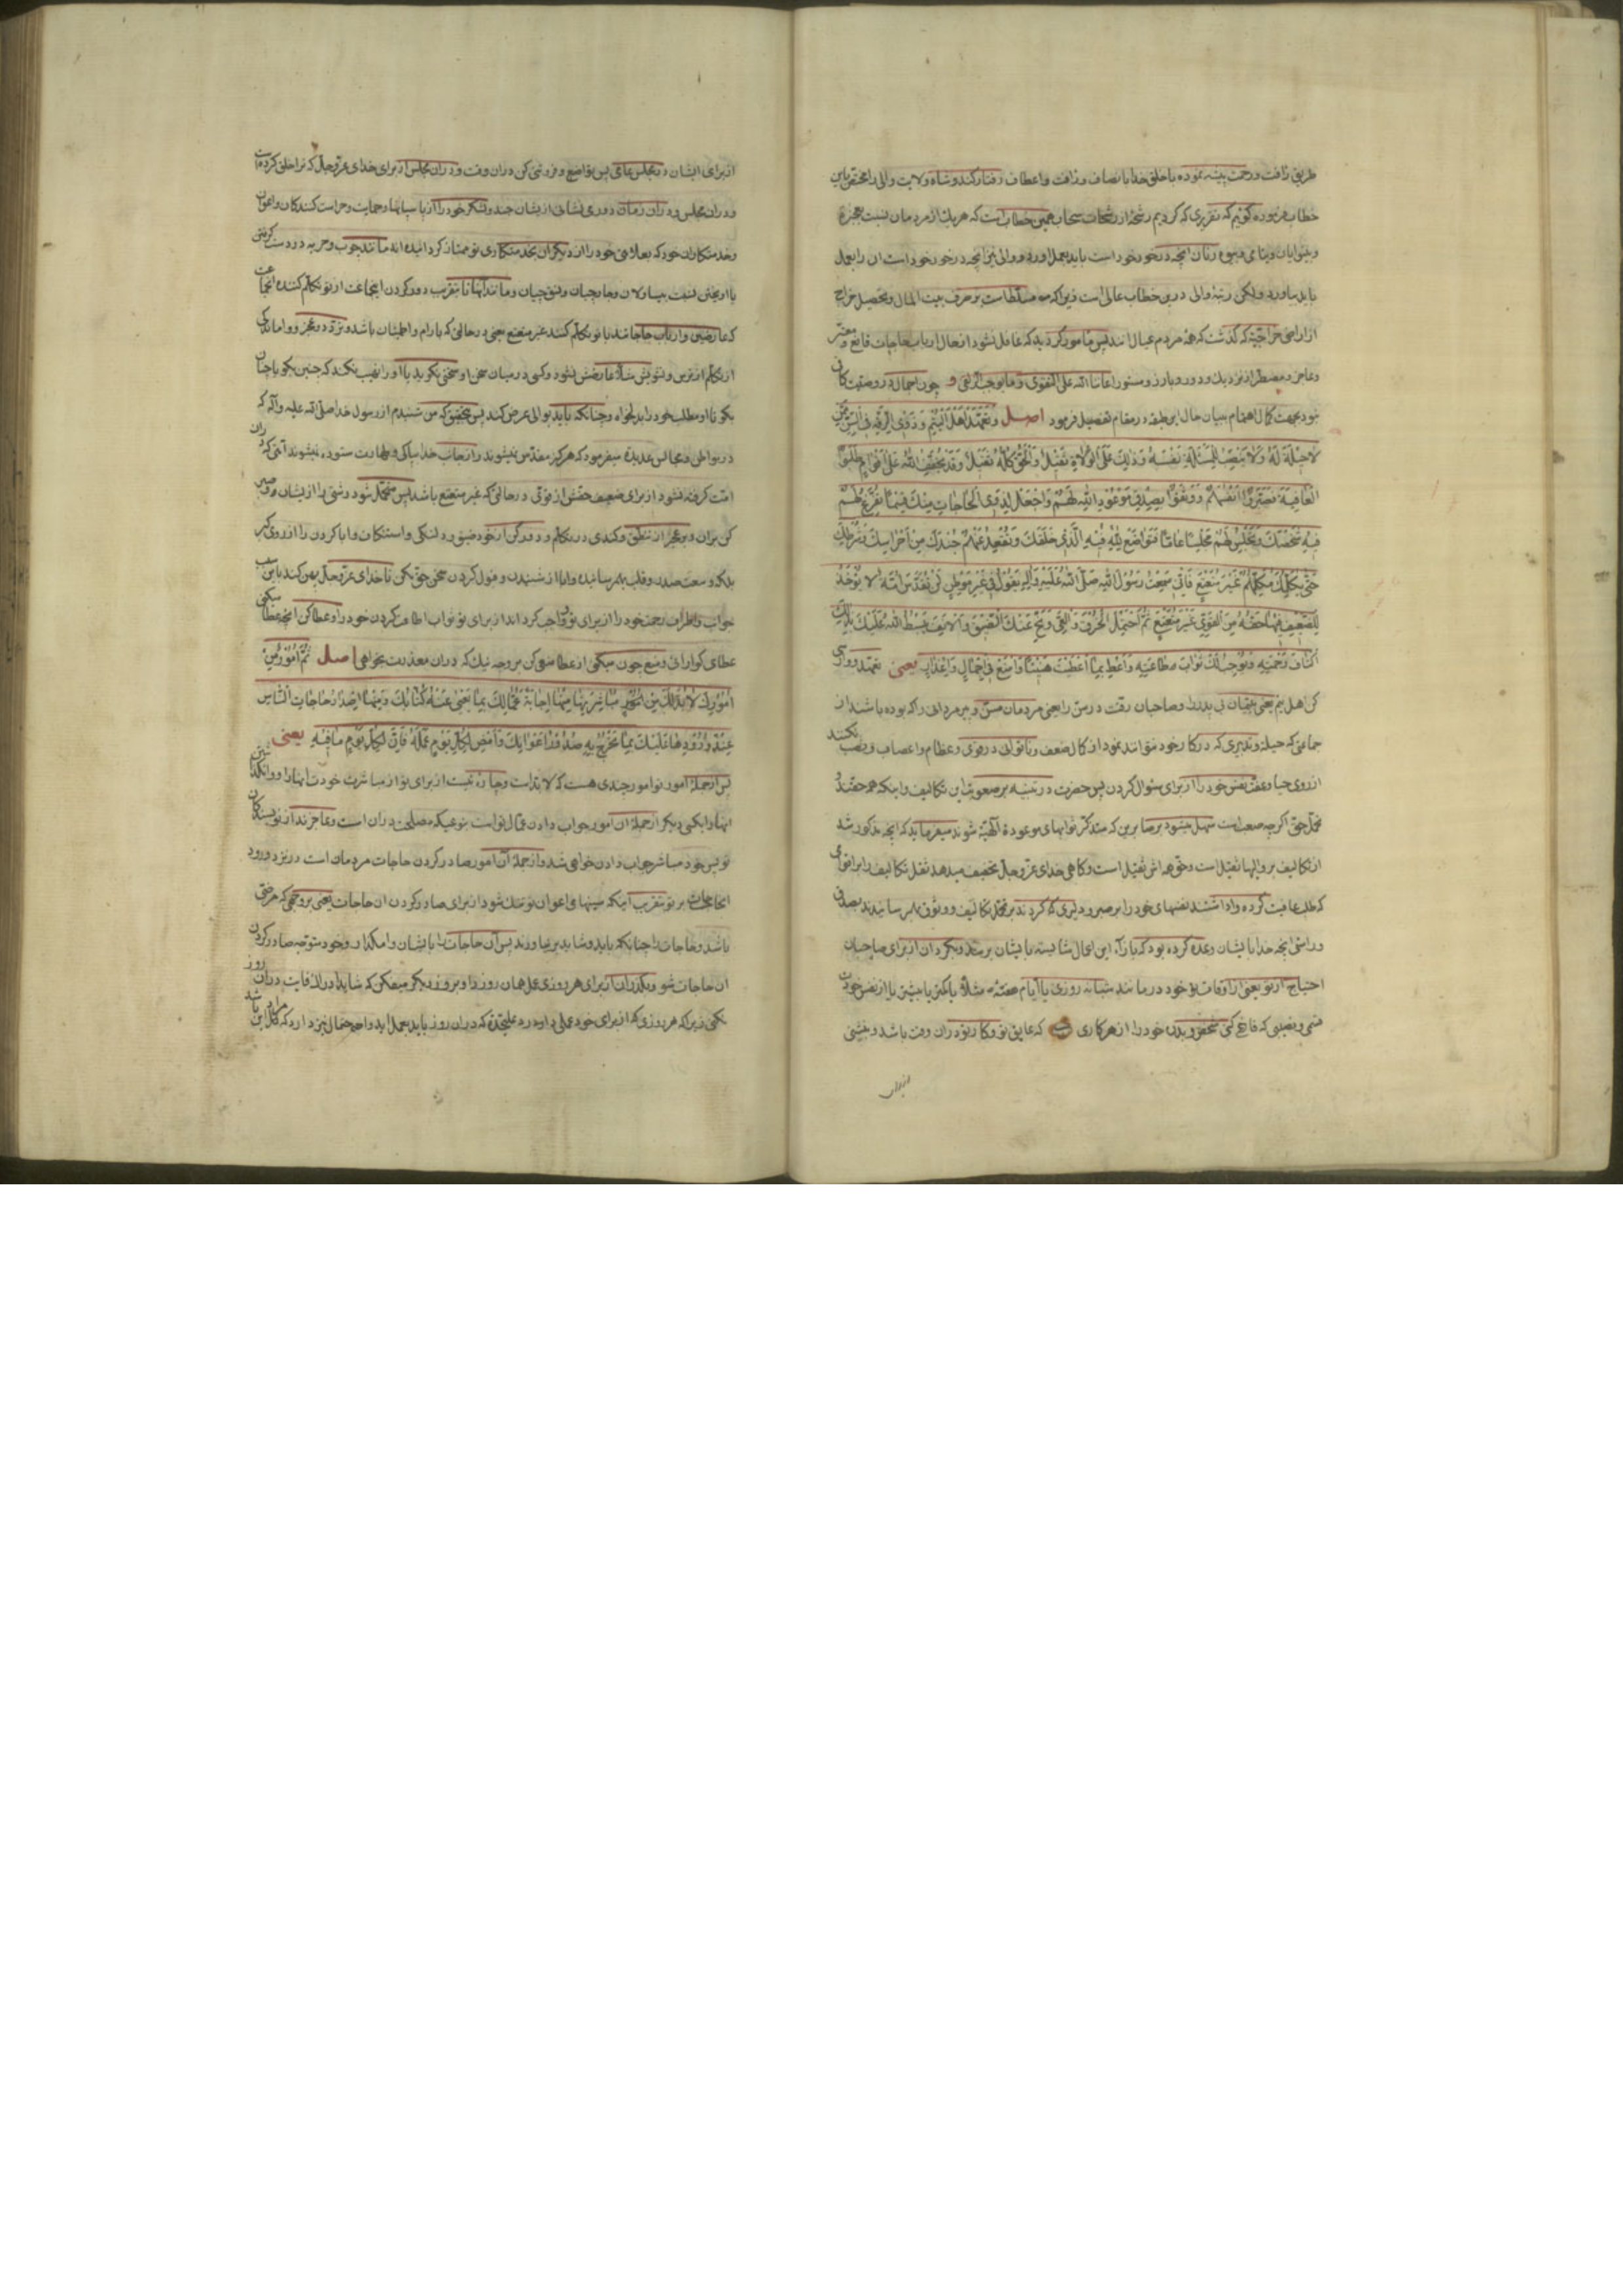 طریق رأفت ورحمت پیشه نموده با خلق خدا بانصاف ورأفت واعطاف رفتار کند وشاه ولایت والی را مختص باین
خطاب فرموده کوئیم که تقریری که کردیم رشحهٔ از رشحات سحاب همین خطاب است که هر یک از مردمان نسبت بعجزه
وبینوایان ویتامی وبیوه زنان آنچه در خور خود است باید بعمل اورد ووالی نیز آنچه در خور خود است ان را بعمل
باید بیاورد ولکن رتبهٔ والی درین خطاب عالی است زیرا که مسلط است بر صرف بیت المال وتحصیل خراج
از اراضی خراجیه که گذشت که همه مردم عیال انند پس مامور گردید که غافل نشود از حال ارباب حاجات قانع ومعتر
وعاجز ومضطر از نزدیک ودور وبارز ومستور اعاننا الله علی التقوی وما یوجب الزلفی و چون اجمال در وصیت کافی
نبود بجهت کمال اهتمام ببیان حال این طبقه در مقام تفصیل فرمود اصل وتعهد اهل الیتم وذوی الرقة فی السن ممن
لا حیلة له ولا ینصب للمسئلة نفسه وذلک علی الولاة ثقیل والحق کله ثقیل وقد یخففه الله علی اقوام طلبوا
العاقبة فصبروا انفسهم ووثقوا بصدق موعود الله لهم واجعل لذوی الحاجات منک قسما تفرغ لهم
فیه شخصک وتجلس لهم مجلسا عاما فتواضع لله فیه الذی خلقک وتقعد عنهم جندک من احراسک وشرطک
حتی یکلمک مکلمهم غیر متتعتع فانی سمعت رسول الله صلی الله علیه واله یقول فی غیر موطن لن تقدس امة لا یؤخذ
للضعیف فیها حقه من القوی غیر متتعتع ثم احتمل الخرق والعی ونح عنک الضیق والانف یبسط الله علیک بذلک
اکناف رحمته ویوجب لک ثواب طاعته واعط بما اعطیت هنیئا وامنع فی اجمال واعذار یعنی تعهد ووارسی
کن اهل یتم یعنی یتیمان بی پدر را وصاحبان رقت در سن را یعنی مردمان مسن وپیر مردانی را که بوده باشند از
جماعتی که حیلة وتدبیری که در کار خود نتوانند نمود از کمال ضعف وناتوانی در قوی وعظام واعصاب ونصب نکنند
از روی حیا وعفت نفس خود را از برای سئوال کردن پس حضرت در تنبیه بر صعوبت این تکالیف واینکه هر چند
تحمل حق اگرچه صعب است سهل میشود بر صابرین که متذکر ثوابهای موعودهٔ الهیه شوند میفرماید که آنچه مذکور شد
از تکالیف بر والیها ثقیل است وحق همه اش ثقیل است وکاهی خدای عز وجل تخفیف میدهد ثقل تکالیف را بر اقوامی
که طلب عافیت کرده واداشتند نفسهای خود را بر صبر ودلیری که کردند بر تحمل تکالیف ووثوق بهم رسانیدند بصدق
وراستی انچه خدا بایشان وعده کرده بود که بازآء این اعمال شایسته بایشان برساند وبگردان از برای صاحبان
احتیاج از تو یعنی از اوقات تو خود در مانند شبانه روزی یا ایام هفته مثلا یا کمتر یا بیشتر یا از نفس خودت
قسمی ونصیبی که فارغ کنی شخص وبدن خود را از هر کاری که عایق تو وکار تو در ان وقت باشد وبنشینی
از برای
از برای ایشان در مجلس عامی پس تواضع وفروتنی کن در ان وقت ودر ان مجلس از برای خدای عز وجل که ترا خلق کرده است
ودر ان مجلس ودر ان زمان دور می نشانی از ایشان جند ولشکر خود را از پاسبانها وحمایت وحراست کنندکان واعوان
وخدمتکاران خود که بعلامتی خود را از دیکران بخدمتکاری تو ممتاز کردانیده اند مانند چوب وحربه در دست کرفتن
که عارضین وارباب حاجات ند با تو تکلم کنند غیر متتعتع یعنی در حالتی که بارام واطمینان باشد وتردد وعجز ووامانده کی
بکو تا او مطلب خود را بدلخواه وچنانکه باید بوالی عرض کند پس بتحقیق که من شنیدم از رسول خدا صلی الله علیه واله که
در مواطن ومجالس عدیده میفرمود که هرگز مقدس نمیشوند واز جانب خدا بپاکی وطهارت ستوده نمیشوند امتی که در ان
امت کرفته نشود از برای ضعیف حقش از قوی در حالتی که غیر متتعتع باشد پس متحمل شو درشتی را از ایشان وصبر
کن بران وبر عجز از تنطق وکندی در تکلم ودور کن از خود ضیق ودلتنکی واستنکاف وابا کردن را از روی کبر
جواب واطراف رحمت خود را از برای تو وواجب کرداند از برای تو ثواب اطاعت کردن خود را وعطا کن انچه عطا میکنی
عطای کوارائی ومنع چون میکنی از عطا منعی کن بر وجه نیک که در ان معذرت بخواهی اصل ثم امور من
امورک لا بد لک من مباشرتها منها اجابة عمالک بما یعیی عنه کتابک ومنها اصدار حاجات الناس
عند ورودها علیک بما تحرج به صدور اعوانک وامض لکل یوم عمله فان لکل یوم ما فیه یعنی
پس از جملهٔ امور تو امور چندی هست که لا بد است وچاره نیست از برای تو از مباشرت خودت انها را ووانکذاشتن
انها را بکسی دیکر از جملهٔ ان امور جواب دادن عمال تو است بنوعیکه مصلحت در ان است وعاجزند از تو نویسندکان
تو پس خود مباشر جواب دادن خواهی شد واز جملهٔ آن امور صادر کردن حاجات مردمان است در نزد ورود
ان حاجات بر تو بتقرب اینکه سینهای اعوان تو تنک شود از برای صادر کردن ان حاجات یعنی بر وجهی که مرضی
باشد وحاجات را چنانکه باید وشاید بر نیاورند پس آن حاجات را بایشان وامکذار وخود متوجه صادر کردن
ان حاجات شو وبکذران از برای هر روزی عمل همان روز را وبروز دیکر میفکن که شاید